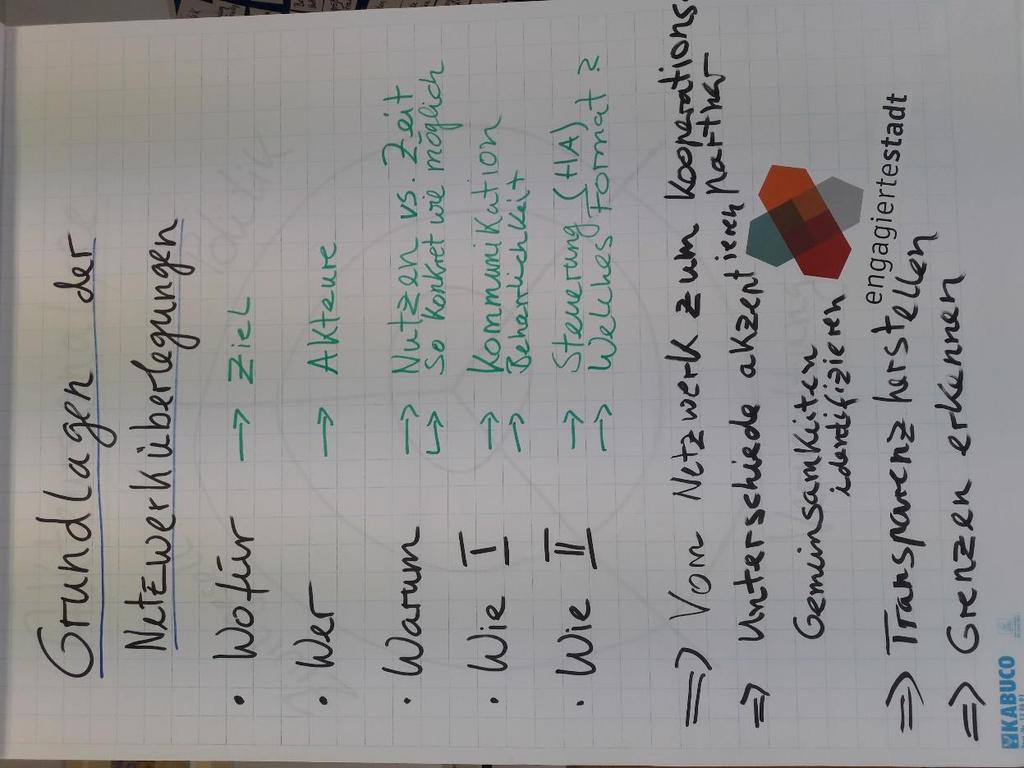 Grundlagen der
Netzwerküberlegungen
• Wofür → Ziel
• Wer → Akteure
• Warum → Nutzen vs. Zeit
↳ So konkret wie möglich
• Wie I → Kommunikation
→ Beharrlichkeit
• Wie II → Steuerung (HA)
→ Welches Format?
⇒ Vom Netzwerk zum Kooperations
partner
⇒ Unterschiede akzentuieren
Gemeinsamkeiten
identifizieren
engagiertestadt
⇒ Transparenz herstellen
⇒ Grenzen erkennen
KABUCO